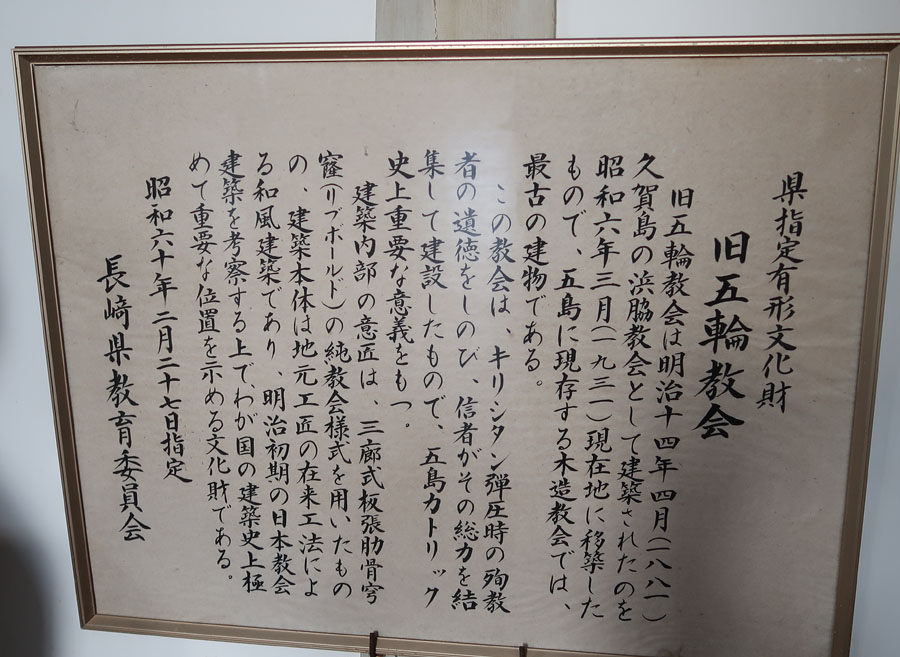 県指定有形文化財
旧五輪教会
旧五輪教会は明治十四年四月(一八八一)
久賀島の浜脇教会として建築されたのを
昭和六年三月(一九三一)現在地に移築した
もので、五島に現存する木造教会では、
最古の建物である。
この教会は、キリシタン弾圧時の殉教
者の遺徳をしのび、信者がその総力を結
集して建設したもので、五島カトリック
史上重要な意義をもつ。
建築内部の意匠は、三廊式板張肋骨穹
窿(リブボールド)の純教会様式を用いたもの
の、建築本体は地元工匠の在来工法によ
る和風建築であり、明治初期の日本教会
建築を考察する上で、わが国の建築史上極
めて重要な位置を示める文化財である。
昭和六十年二月二十七日指定
長崎県教育委員会